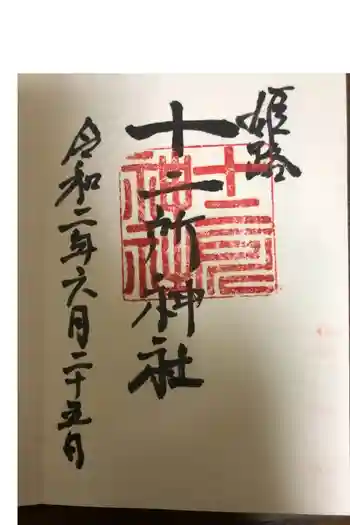 姫路
十二所神社
令和二年六月二十五日
十二所
神社